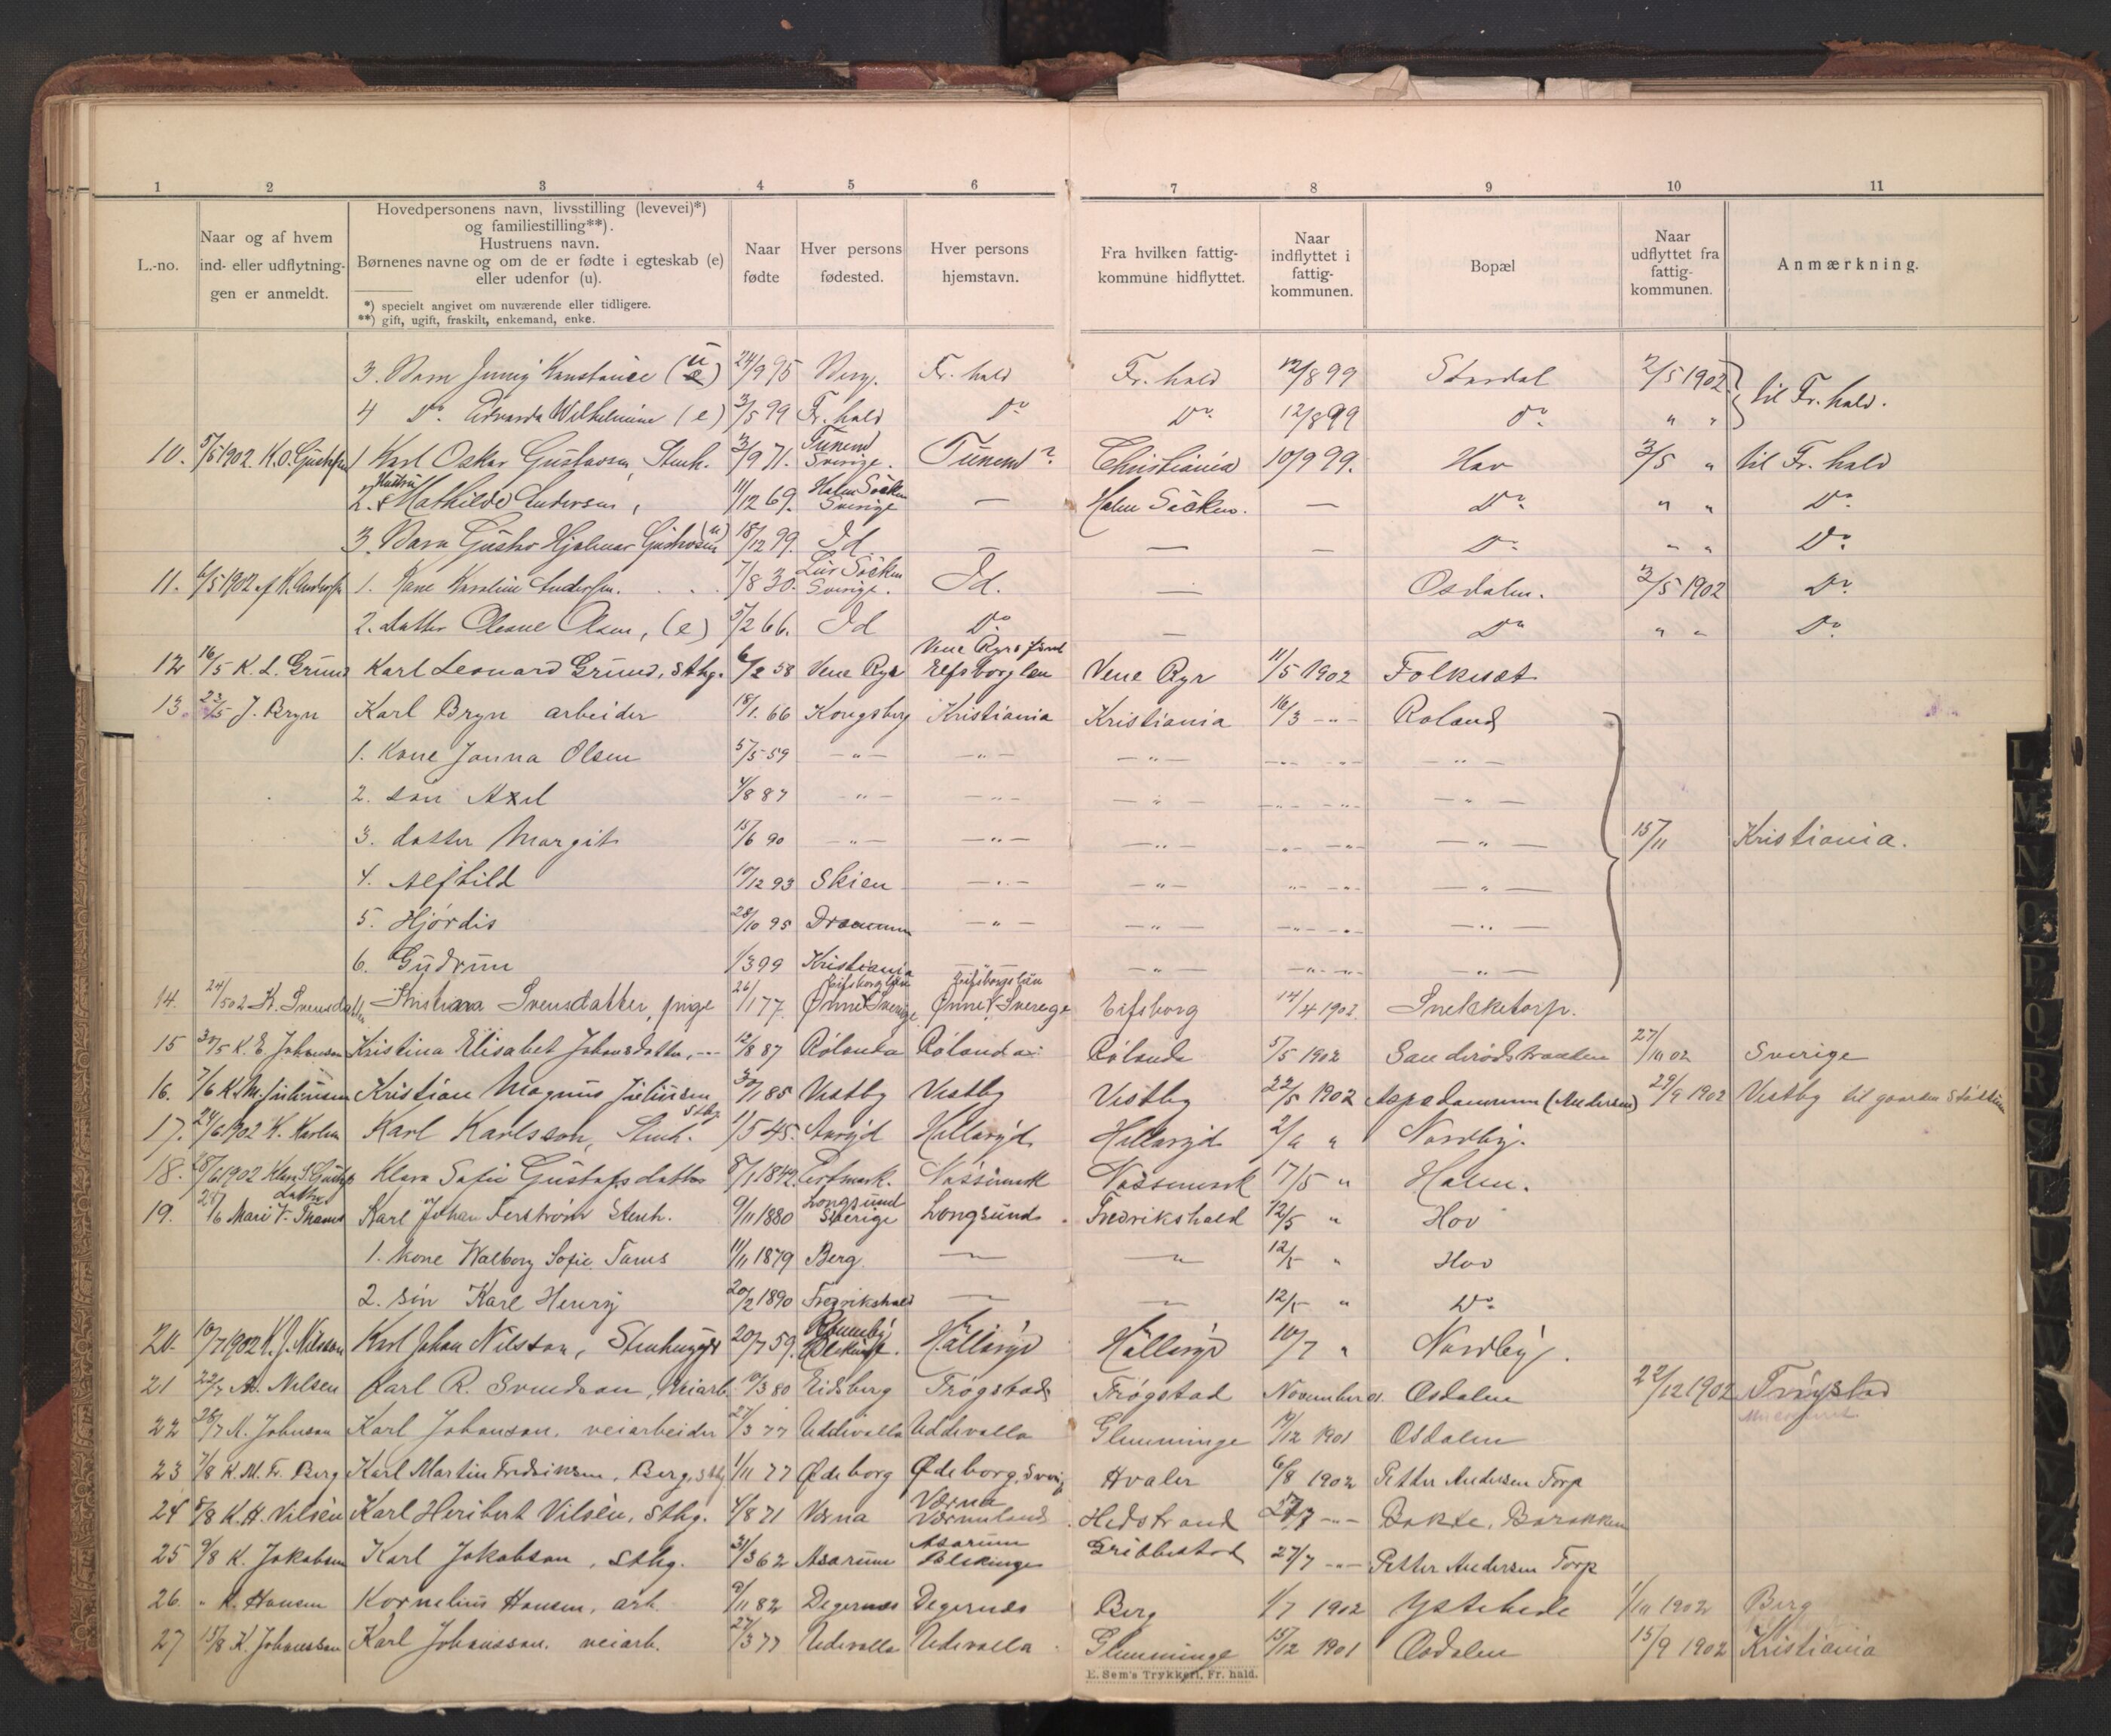 1 2 3 4 5 6 7 8 9 10 11
L.-no.
Naar og af hvem
ind- eller udflytnin-
gen er anmeldt.
Hovedpersonens navn, livsstilling (levevei)*)
og familiestilling**).
Hustruens navn.
Børnenes navne og om de er fødte i egteskab (e)
eller udenfor (u).
*) specielt angivet om nuværende eller tidligere.
**) gift, ugift, fraskilt, enkemand, enke.
Naar
fødte
Hver persons
fødested.
Hver persons
hjemstavn.
Fra hvilken fattig-
kommune hidflyttet.
Naar
indflyttet i
fattig-
kommunen.
Bopæl
Naar
udflyttet fra
fattig-
kommunen.
Anmærkning.
3. Barn Jenny Konstance (u) 24/9 95 Berg. Fr. hald Fr. hald 12/8 99 Stardal 2/5 1902 til Fr. hald.
4 Do. Edvarda Wilhelmine (e) 3/5 99 Fr. hald Do Do. 12/8 99 Do. " "
10. 5/5 1902. K.O. Gustafsen 1 Karl Oskar Gustavsen, Stenh. 3/9 71. Tunem Sverige. Tunem? Christiania 10/9 99. Hov 3/5 " til Fr. hald
2. Hustru Mathilde Andersen, 11/12 69. Holm Söcken Sverige — Holm Söcken. — Do. " " Do.
3. Barn Gustav Hjalmar Gustavsen (u) 18/12 99. Id — — — Do. " " Do.
11. 6/5 1902 af K. Andersen 1. Kone Karoline Andersen. 7/8 30. Lur Söcken Sverige. Id. — Osdalen. 3/5 1902 Do.
2. datter Oleane Olsen, (e) 5/2 66. Id Do — Do " " Do.
12 16/5 K. L. Grund Karl Leonard Grund, sthg. 6/2 58 Vene Ryr Vene Ryrs Elfsborg len Vene Ryr 11/5 1902 Folkesæt
13. 23/5 J. Bryn Karl Bryn arbeider 18/1. 66 Kongsberg Kristiania Kristiania 16/3 —"— Roland
1. Kone Janna Olsen 5/5 59 —"— —"— —"— —"— —"— —"—
2. søn Axel 4/8 87 —"— —"— —"— —"— —"— —"—
3. datter Margit 15/6 90 —"— —"— —"— —"— —"— —"— 15/11 Kristiania.
4. Alfhild 10/12 93 Skien —"— —"— —"— —"— —"—
5. Hjørdis 28/10 95 Drammen —"— —"— —"— —"— —"—
6. Gudrun 1/3 99 Kristiania —"— —"— —"— —"— —"—
14. 24/5 02 K. Svensdatter Kristiana Svensdatter, pige 26/1 77. Elfsborg län Ønne Sverige Elfsborgs län Ønne Sverege Elfsborg 14/4 1902. Snekketorp.
15 30/5 K. E. Johansen Kristina Elisabet Johansdatter, —"— 12/8 87 Rölanda Rölanda Rölanda 5/5 1902 Sanderødstranden 27/10 02 Sverige
16. 7/6 K. M. Juliusen Kristian Magnus Juliusen 30/1 85 Vestby Vestby Vestby 22/5 1902 Aspedammen (Andersen) 29/9 1902 Vestby til gaarden
17. 24/6 1902 K. Karlsen Karl Karlsson, Stenh. Sthg. 1/5 45. Aaryd Hallaryd Hallaryd 2/6 " Nordby.
18. 28/6 1902 Klara S. Gustafsdatter Klara Sofie Gustafsdatter 8/1 1842 Nössemark Nössemark 17/5 " Holm.
19. 28/6 Mari V. Thams Karl Johan Ferström Stenh. 9/11 1880 Longsund Sverige Longsund. Fredrikshald 12/5 " Hov
1. kone Walborg Sofie Tams 11/11 1879 Berg. — — 12/5 " Hov
2. søn Karl Henry 20/2 1890 Fredrikshald — — 12/5 " Do.
20. 10/7 1902 K. J. Nilsson Karl Johan Nilsson, Stenhugger 20/7 59. Blekinge. Hallaryd Hallaryd 10/7 " Nordby.
21 22/7 Nilsen Karl R. Svendsen, veiarb. 10/3 80 Eidsberg Trøgstad Trøgstad November 01. Osdalen 22/12 1902 Trøgstad
22 28/7 M. Johnson Karl Johanson. veiarbeider 27/3 77 Uddevalla Uddevalla Glemminge 10/12 1901 Osdalen
23 7/8 K. M. F. Berg Karl Martin Fredriksen, Berg, sthg 1/11 77 Ødeborg Ødeborg, Sverig Hvaler 6/8 1902 Petter Andersen Torp
24 8/8 K. H. Vilsén Karl Heribert Vilsén, sthg. 4/8 71 Værna Værna Vermland Hedstrand 27/7 —"— Bakke, Barakken
25 9/8 K. Jakobsen Karl Jakobson, Sthg. 31/3 62 Asarum Asarum Blekinge Gribbestad 27/7 —"— Petter Andersen Torp
26. " K. Hansen Kornelius Hansen, arb. 9/11 82 Degernes Degernes Berg 1/7 1902 Ystehede 1/11 1902 Berg
27 15/8 K. Johansson Karl Johansson. veiarb. 27/3 77 Udevalla Udevalla Glemminge 15/12 1901 Osdalen 15/9 1902 Kristiania
E. Sem's Trykkeri, Fr. hald.
L
M
N
O
P
Q
R
S